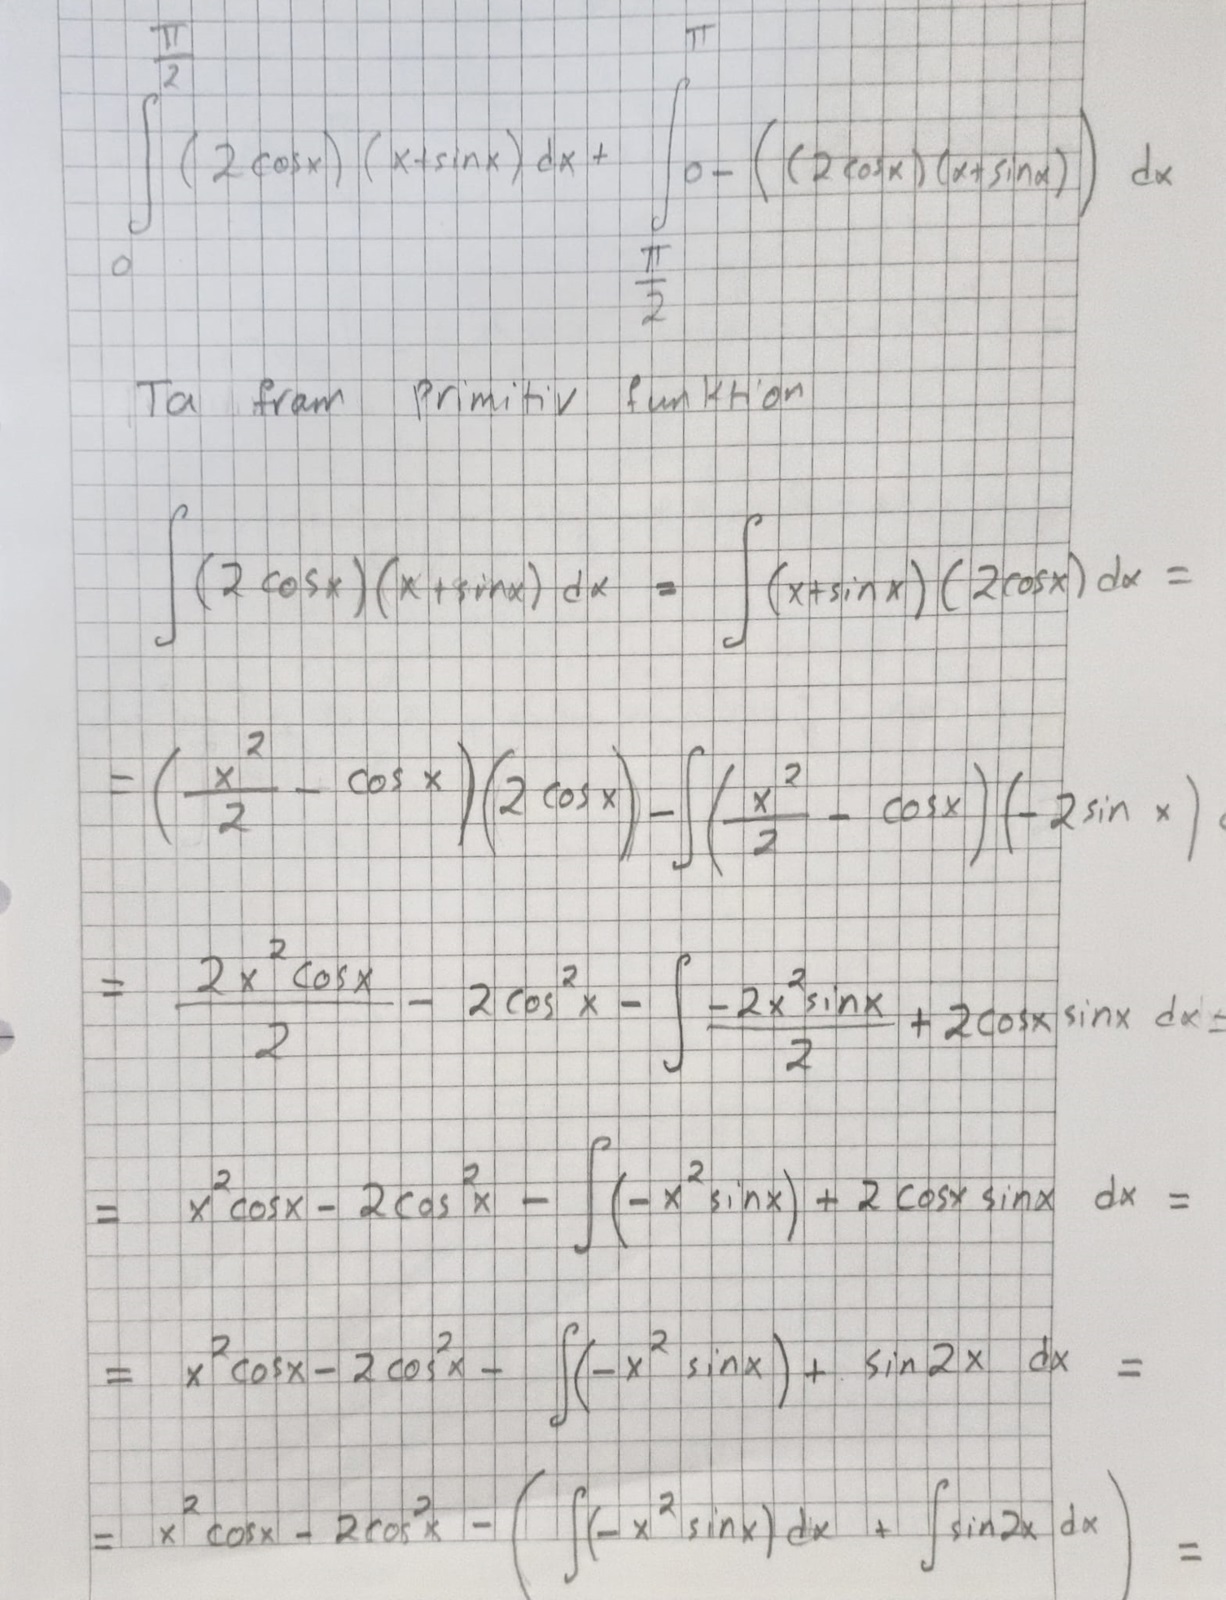 ∫₀^(π/2) (2cosx)(x+sinx) dx + ∫_(π/2)^π 0-((2cosx)(x+sinx)) dx
Ta fram primitiv funktion
∫(2cosx)(x+sinx) dx = ∫(x+sinx)(2cosx) dx =
= (x²/2 - cosx)(2cosx) - ∫(x²/2 - cosx)(-2sinx)
= 2x²cosx/2 - 2cos²x - ∫ -2x²sinx/2 + 2cosxsinx dx =
= x²cosx - 2cos²x - ∫(-x²sinx) + 2cosxsinx dx =
= x²cosx - 2cos²x - ∫(-x²sinx) + sin2x dx =
= x²cosx - 2cos²x - (∫(-x²sinx) dx + ∫sin2x dx) =